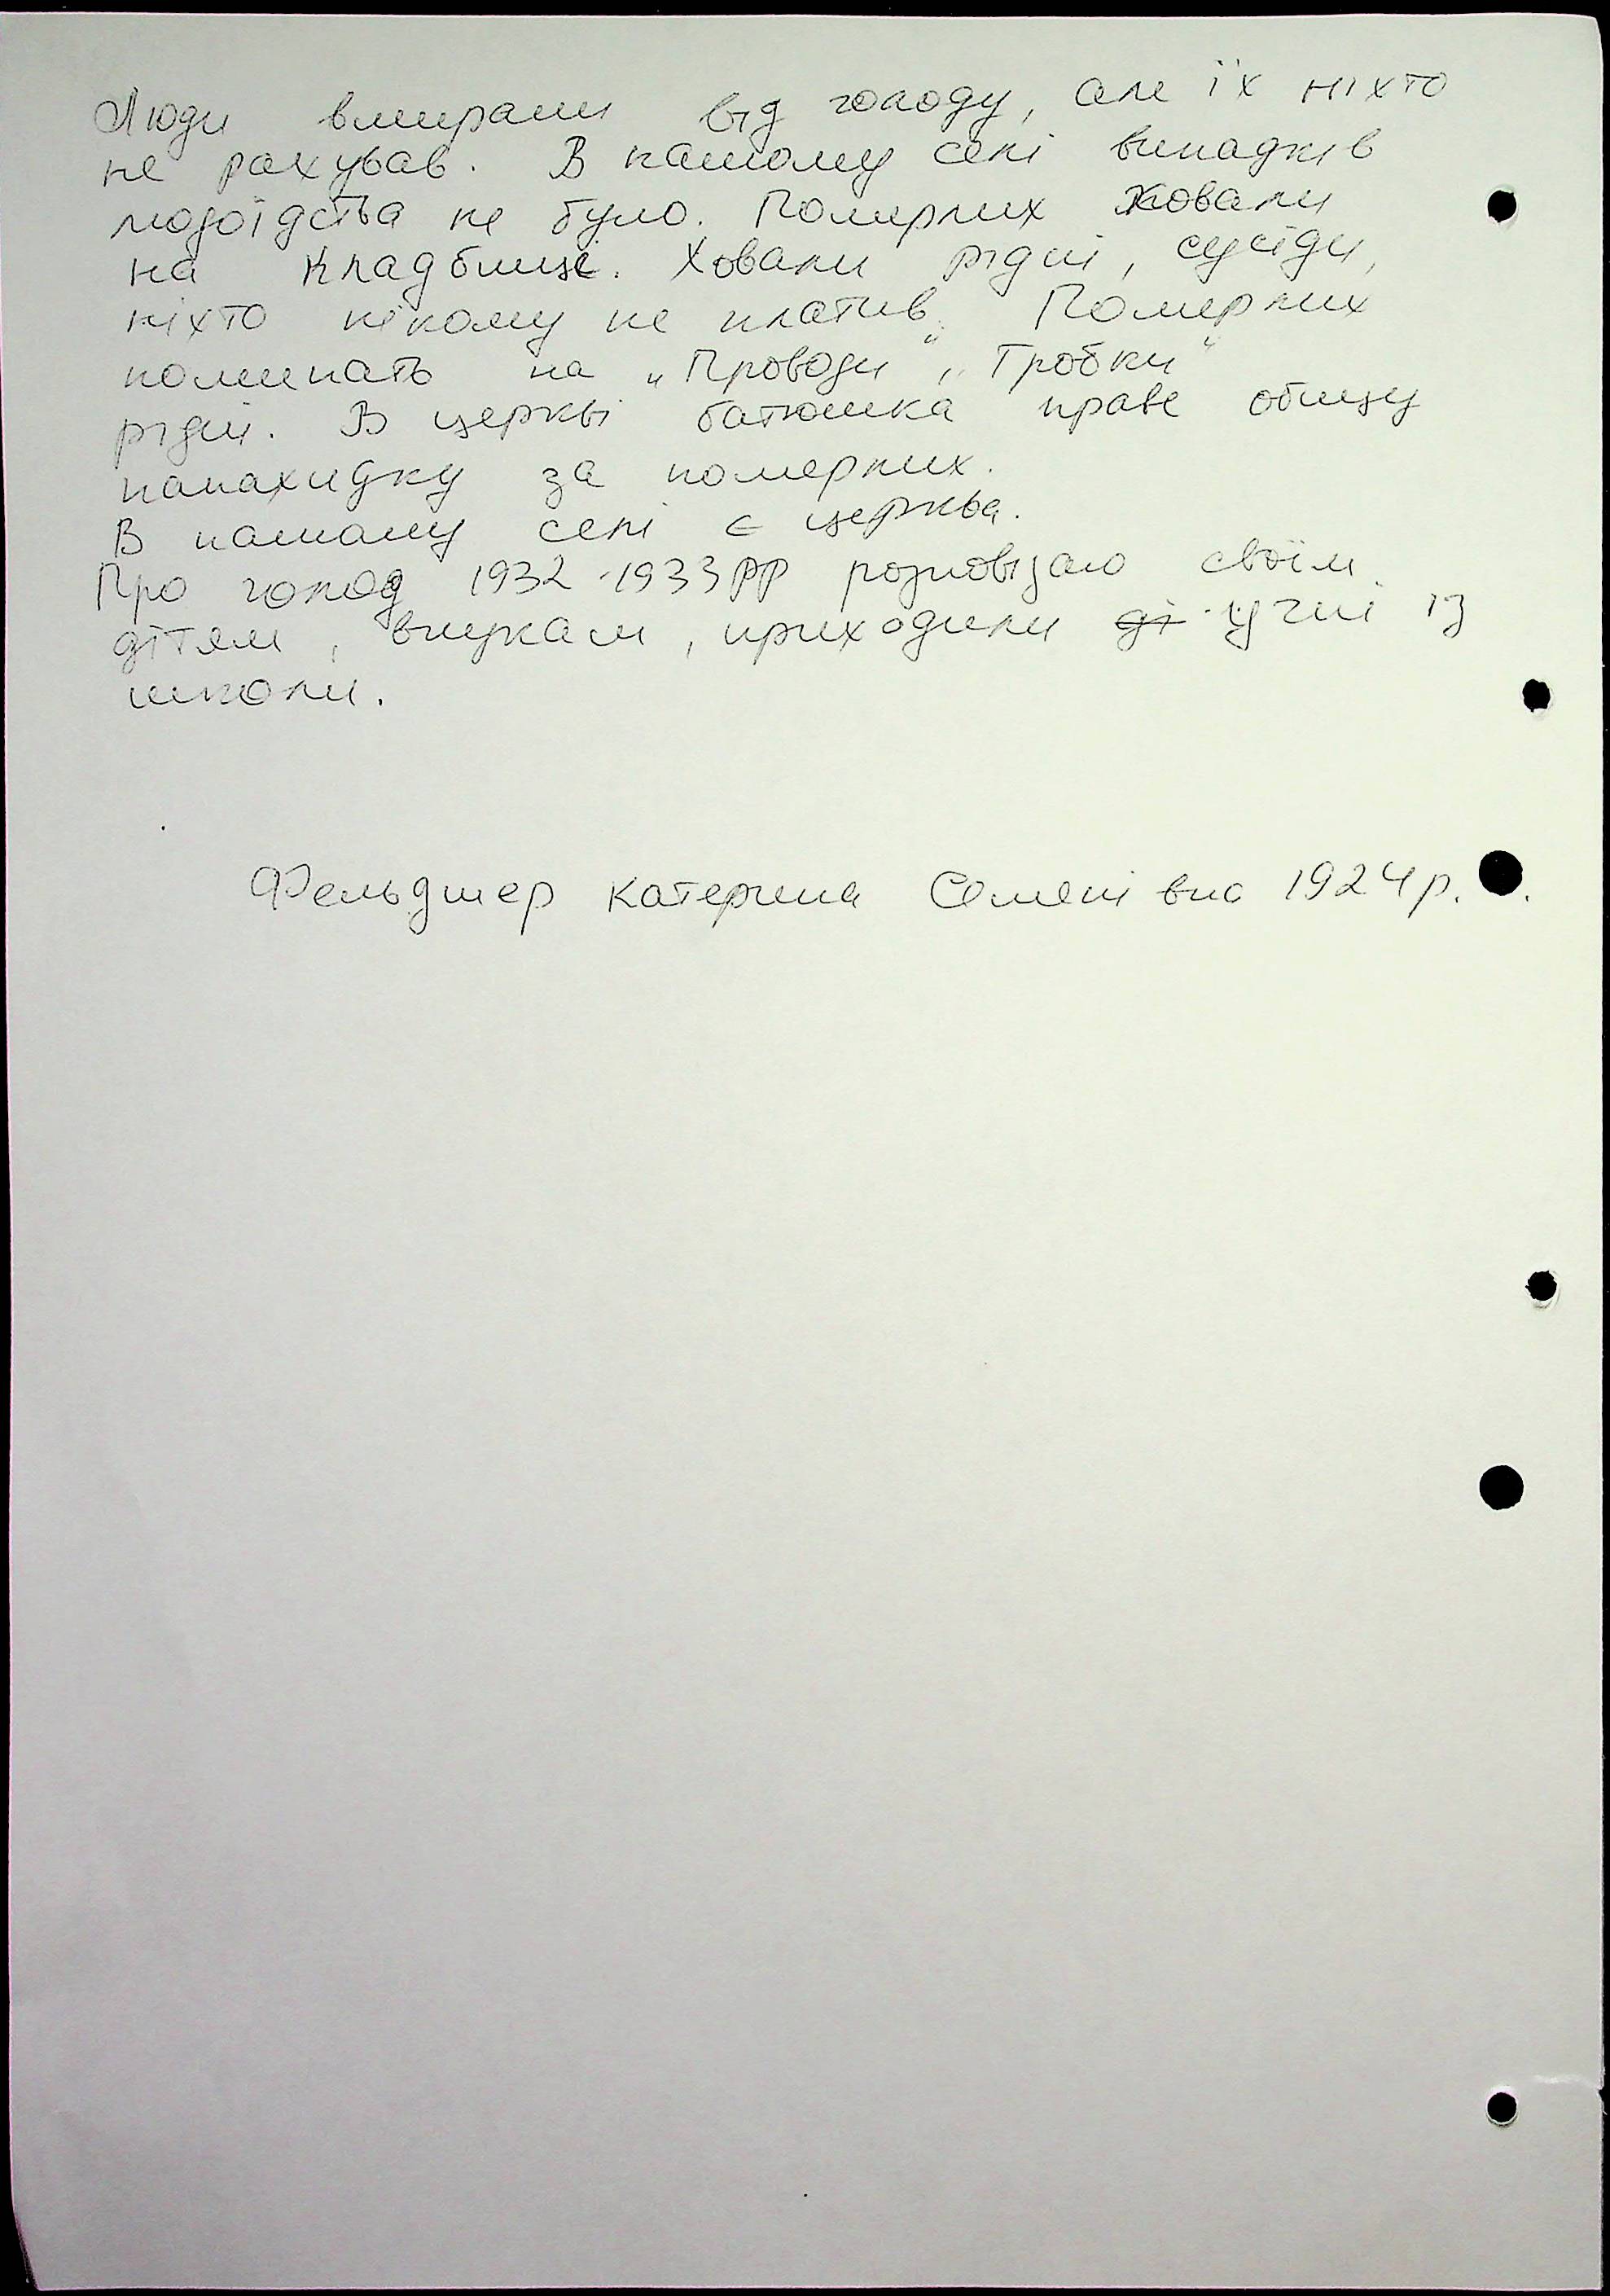 Люди вмирали від голоду, але їх ніхто
не рахував. В нашому селі випадків
людоїдства не було. Померлих ховали
на кладбищі. Ховали рідні, сусіди,
ніхто нікому не платив. Померлих
поминать на „Проводи", „Гробки"
рідні. В церкві батюшка праве общу
панахидку за померлих.
В нашому селі є церква.
Про голод 1932-1933 рр розповідаю своїм
дітям, внукам, приходили ді учні із
школи.
Фельдшер Катерина Семенівна 1924 р.